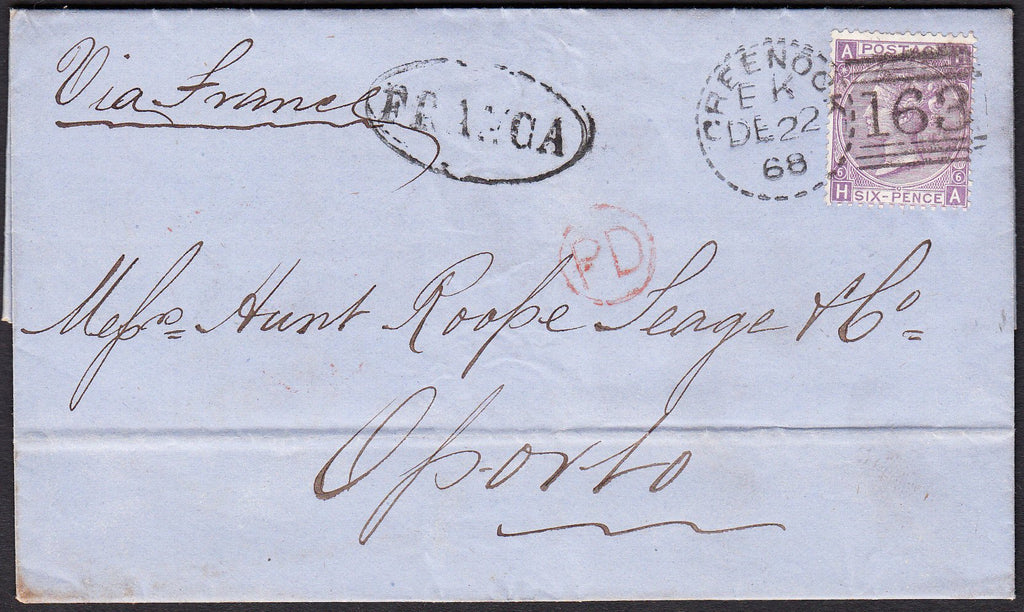 Via France
FRANCA
GREENOC
EK
DE 22
68
A POSTAGE H
163
6 6
H SIX-PENCE A
PD
Messrs. Hunt Roope Teage & Co.
Oporto